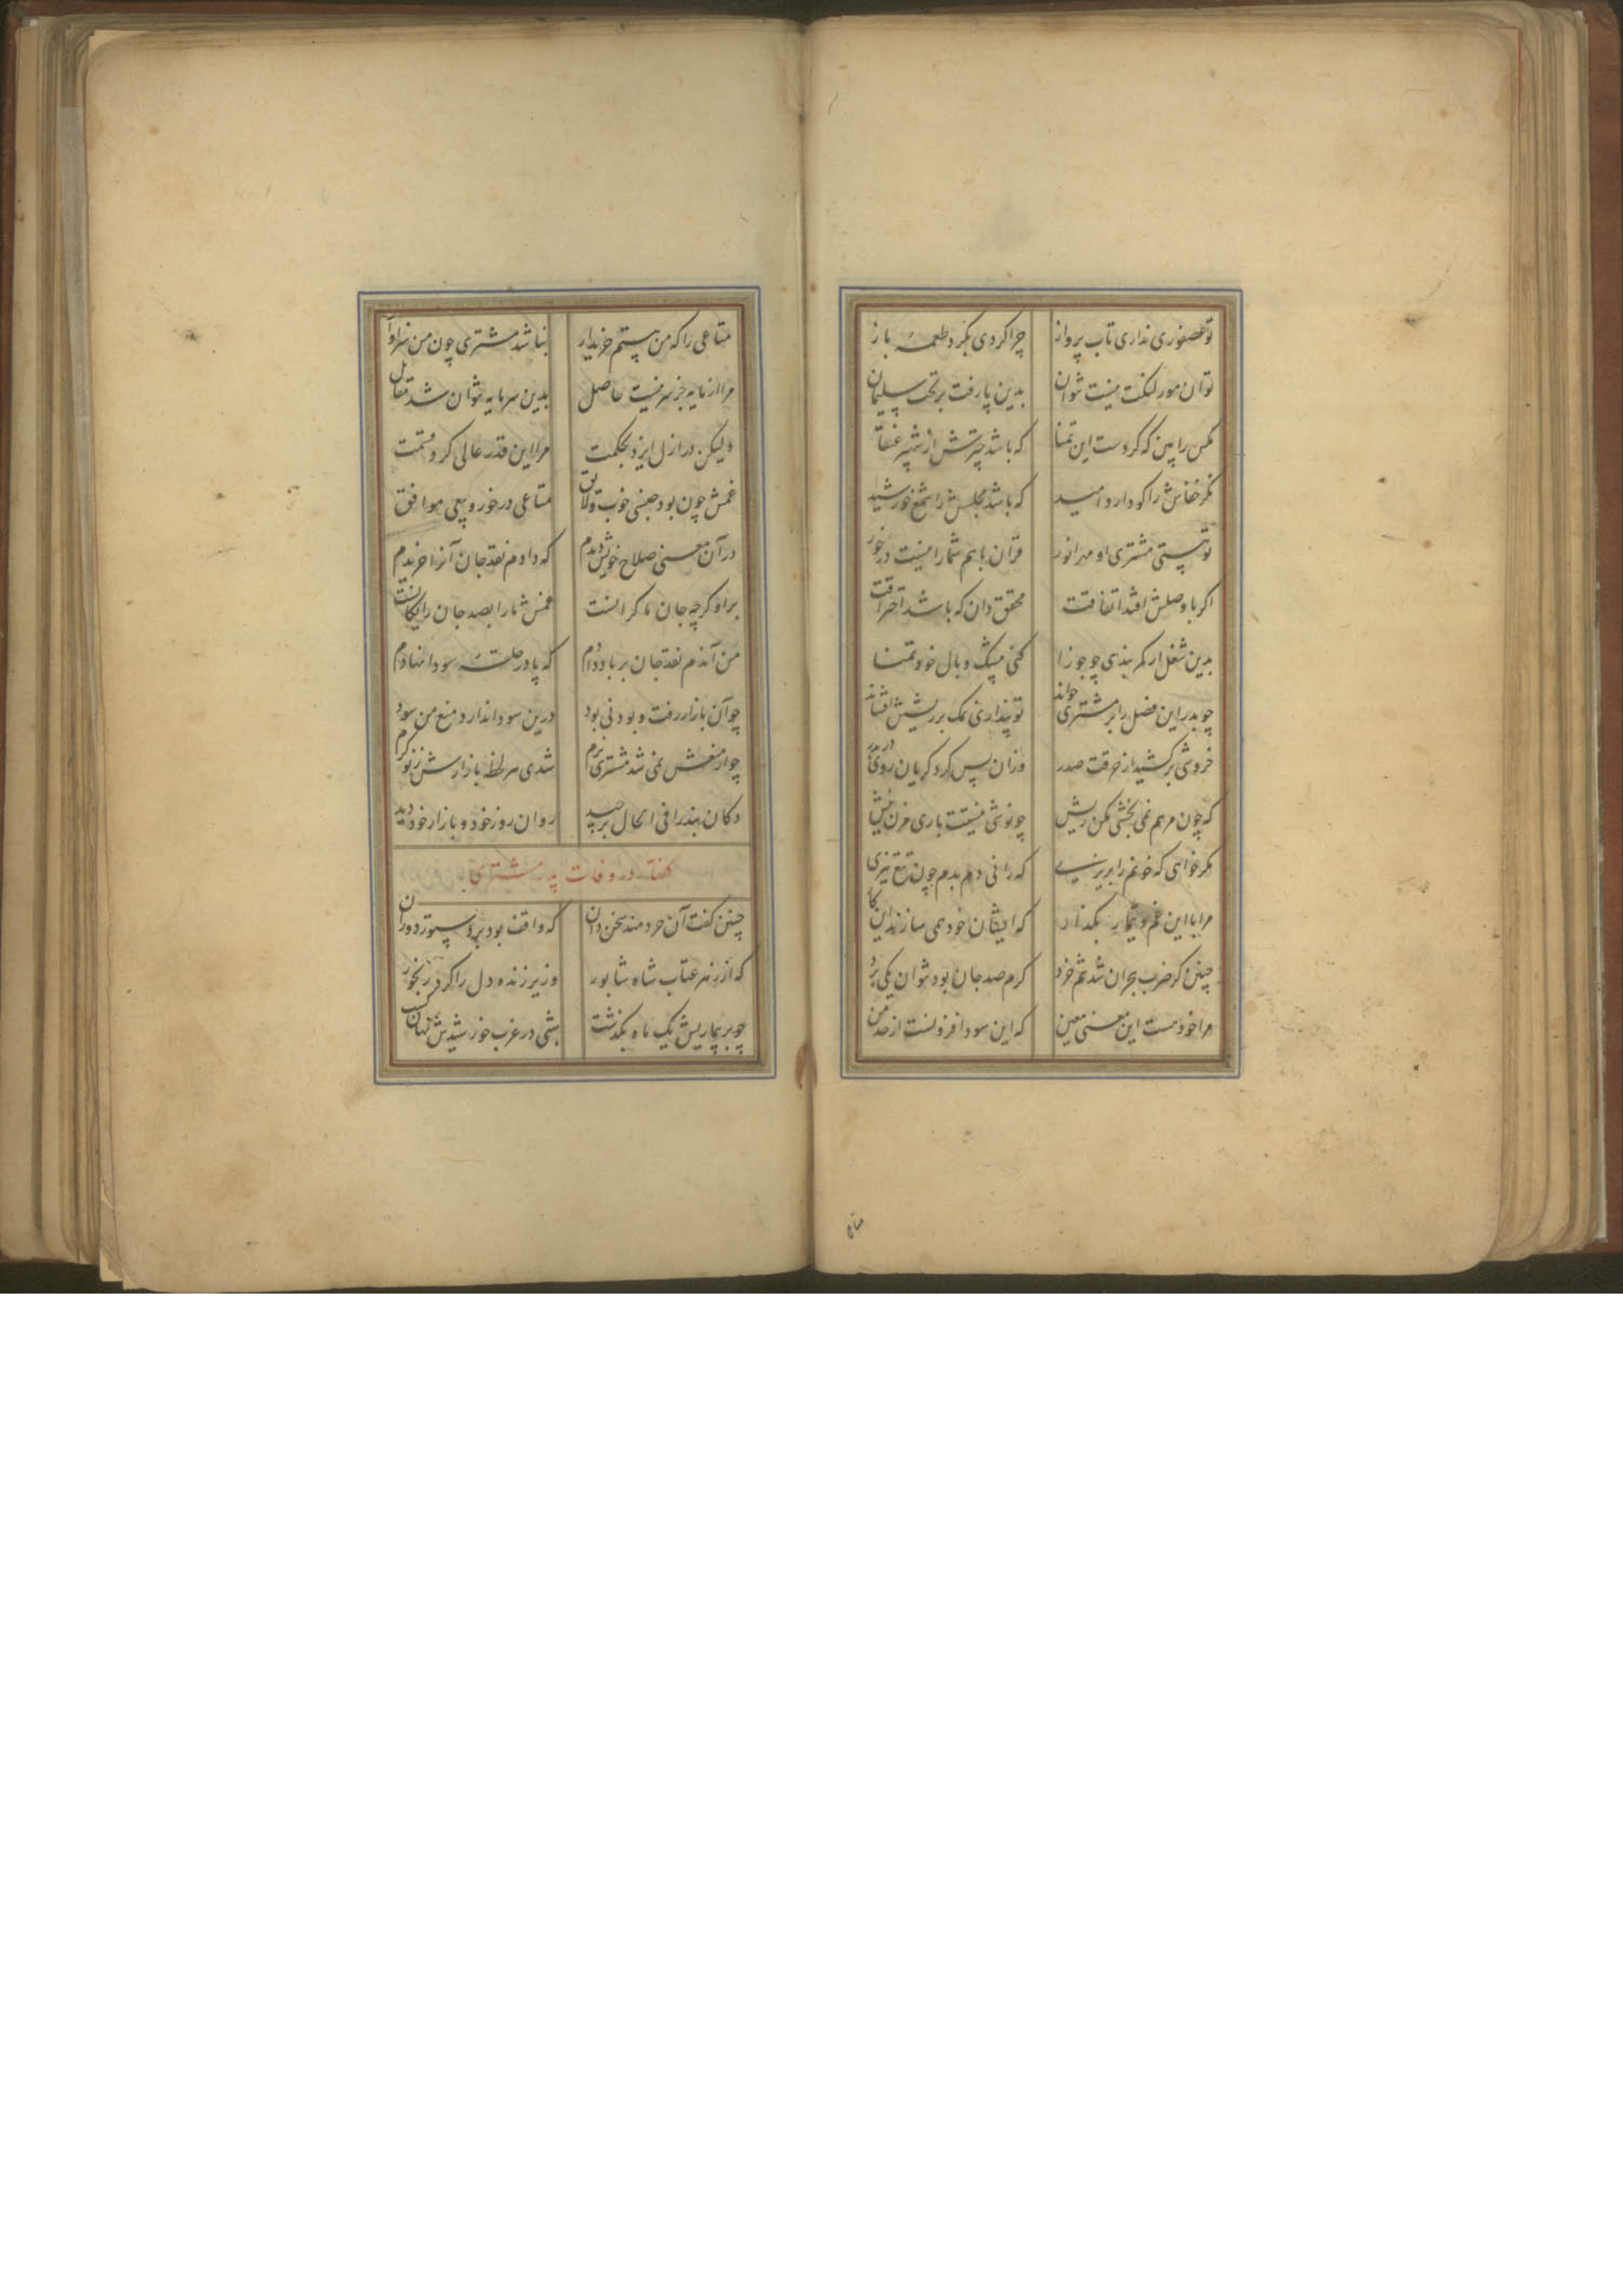 تو عصفوری نداری تاب پرواز چرا کردی بکرد طعمه باز
تو آن مور لنکت نیست توان بدین پا رفت بر تخت سلیمان
مکس را بین که کردست این تمنا که باشد چترش از شهپر عنقا
نکر خفاش را کو دارد امید که باشد مجلسش را شمع خورشید
تو هستی مشتری او مهر انور قران باهم شما را نیست در خور
اکر با وصلش افتد اتفاقت محقق دان که باشد احتراقت
بدین شغل ار کمر بندی چو جوزا کنی بیشک وبال خود تمنا
چو بدر این فضل را بر مشتری خواند تو پنداری نمک بر ریشش افشاند
خروشی برکشید از حرقت صدر وزان پس کرد کریان روی در بدر
که چون مرهم نمی بخشی مکن ریش چو نوشی نیستت باری مزن نیش
مکر خواهی که خونم را بریزی که رانی دم بدم چون تیغ تیزی
مرا با این غم و تیمار بکذار که ایشان خود همی سازند این کار
چنین کز ضرب بحران شد تنم خرد کرم صد جان بود نتوان یکی برد
مرا خود هست این معنی معین که این سودا فزونست از حد من
متاعی
متاعی را که من هستم خریدار نباشد مشتری چون من سزاوار
مرا از مایه جز سر نیست حاصل بدین سرمایه نتوان شد مقابل
ولیکن در ازل ایزد بحکمت مرا این قدر عالی کرد قسمت
غمش چون بود جنسی خوب و لایق متاعی در خور و بیعی موافق
در آن معنی صلاح خویش دیدم که دادم نقد جان آنرا خریدم
بر او کرچه جان ما کرانست غمش ما را بصد جان رایکانست
من آندم نقد جان بر باد دادم که پا در حلقه سودا نهادم
چو آن بازار رفت و بودنی بود درین سودا ندارد منع من سود
چو از منعش نمی شد مشتری نرم شدی هر لحظه بازارش ز نو کرم
دکان پند را فی الحال برچید روان روز خود و بازار خود دید
گفتار در وفات پدر مشتری
چنین کفت آن خردمند سخن دان که واقف بود بر دستور دوران
که از زهر عتاب شاه شابور وزیر زنده دل را کرد رنجور
چو بر بیماریش یک ماه بکذشت شبی در غرب خورشیدش نهان کشت